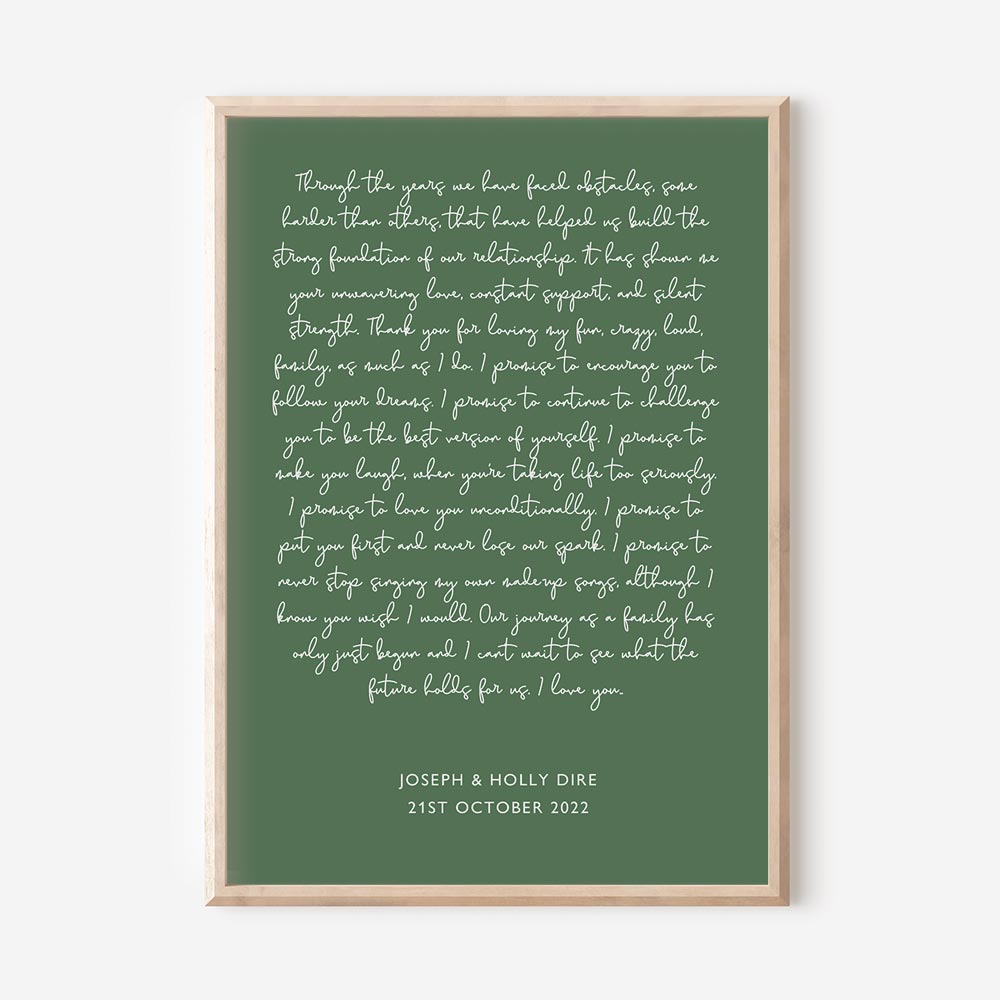 Through the years we have faced obstacles, some
harder than others, that have helped us build the
strong foundation of our relationship. It has shown me
your unwavering love, constant support, and silent
strength. Thank you for loving my fun, crazy, loud,
family, as much as I do. I promise to encourage you to
follow your dreams. I promise to continue to challenge
you to be the best version of yourself. I promise to
make you laugh, when you're taking life too seriously.
I promise to love you unconditionally. I promise to
put you first and never lose our spark. I promise to
never stop singing my own made up songs, although I
know you wish I would. Our journey as a family has
only just begun and I cant wait to see what the
future holds for us. I love you..
JOSEPH & HOLLY DIRE
21ST OCTOBER 2022